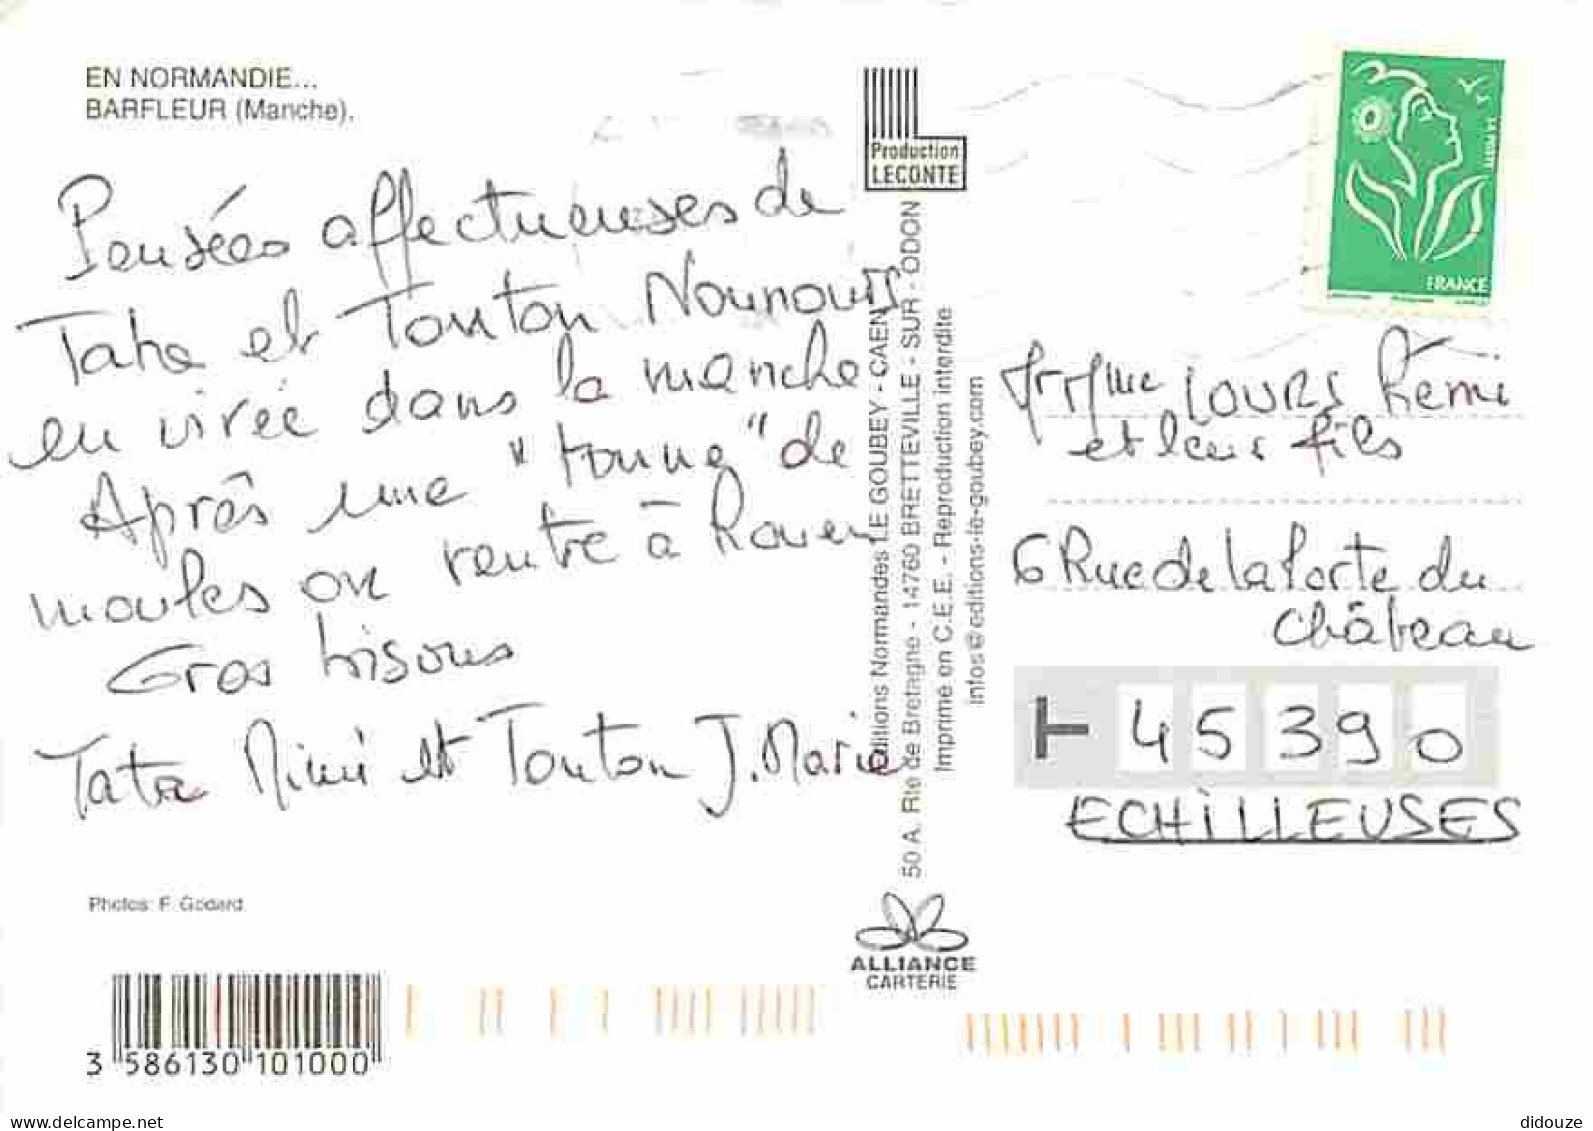 EN NORMANDIE...
BARFLEUR (Manche).
Pensées affectueuses de
Tata et Tonton Nounours
en virée dans la manche
Après une "tonne" de
moules on rentre à Rouen
Gros bisous
Tata Mimi et Tonton J. Marie
Photos: F. Godard
3 586130 101000
Production
LECONTE
Editions Normandes LE GOUBEY - CAEN
50 A. Rte de Bretagne - 14760 BRETTEVILLE - SUR - ODON
Imprimé en C.E.E. - Reproduction interdite
infos@editions-le-goubey.com
ALLIANCE
CARTERIE
LA POSTE
FRANCE
Mr Mme LOURS Rémi
et leur fils
6 Rue de la Porte du
Château
45390
ECHILLEUSES
www.delcampe.net
didouze